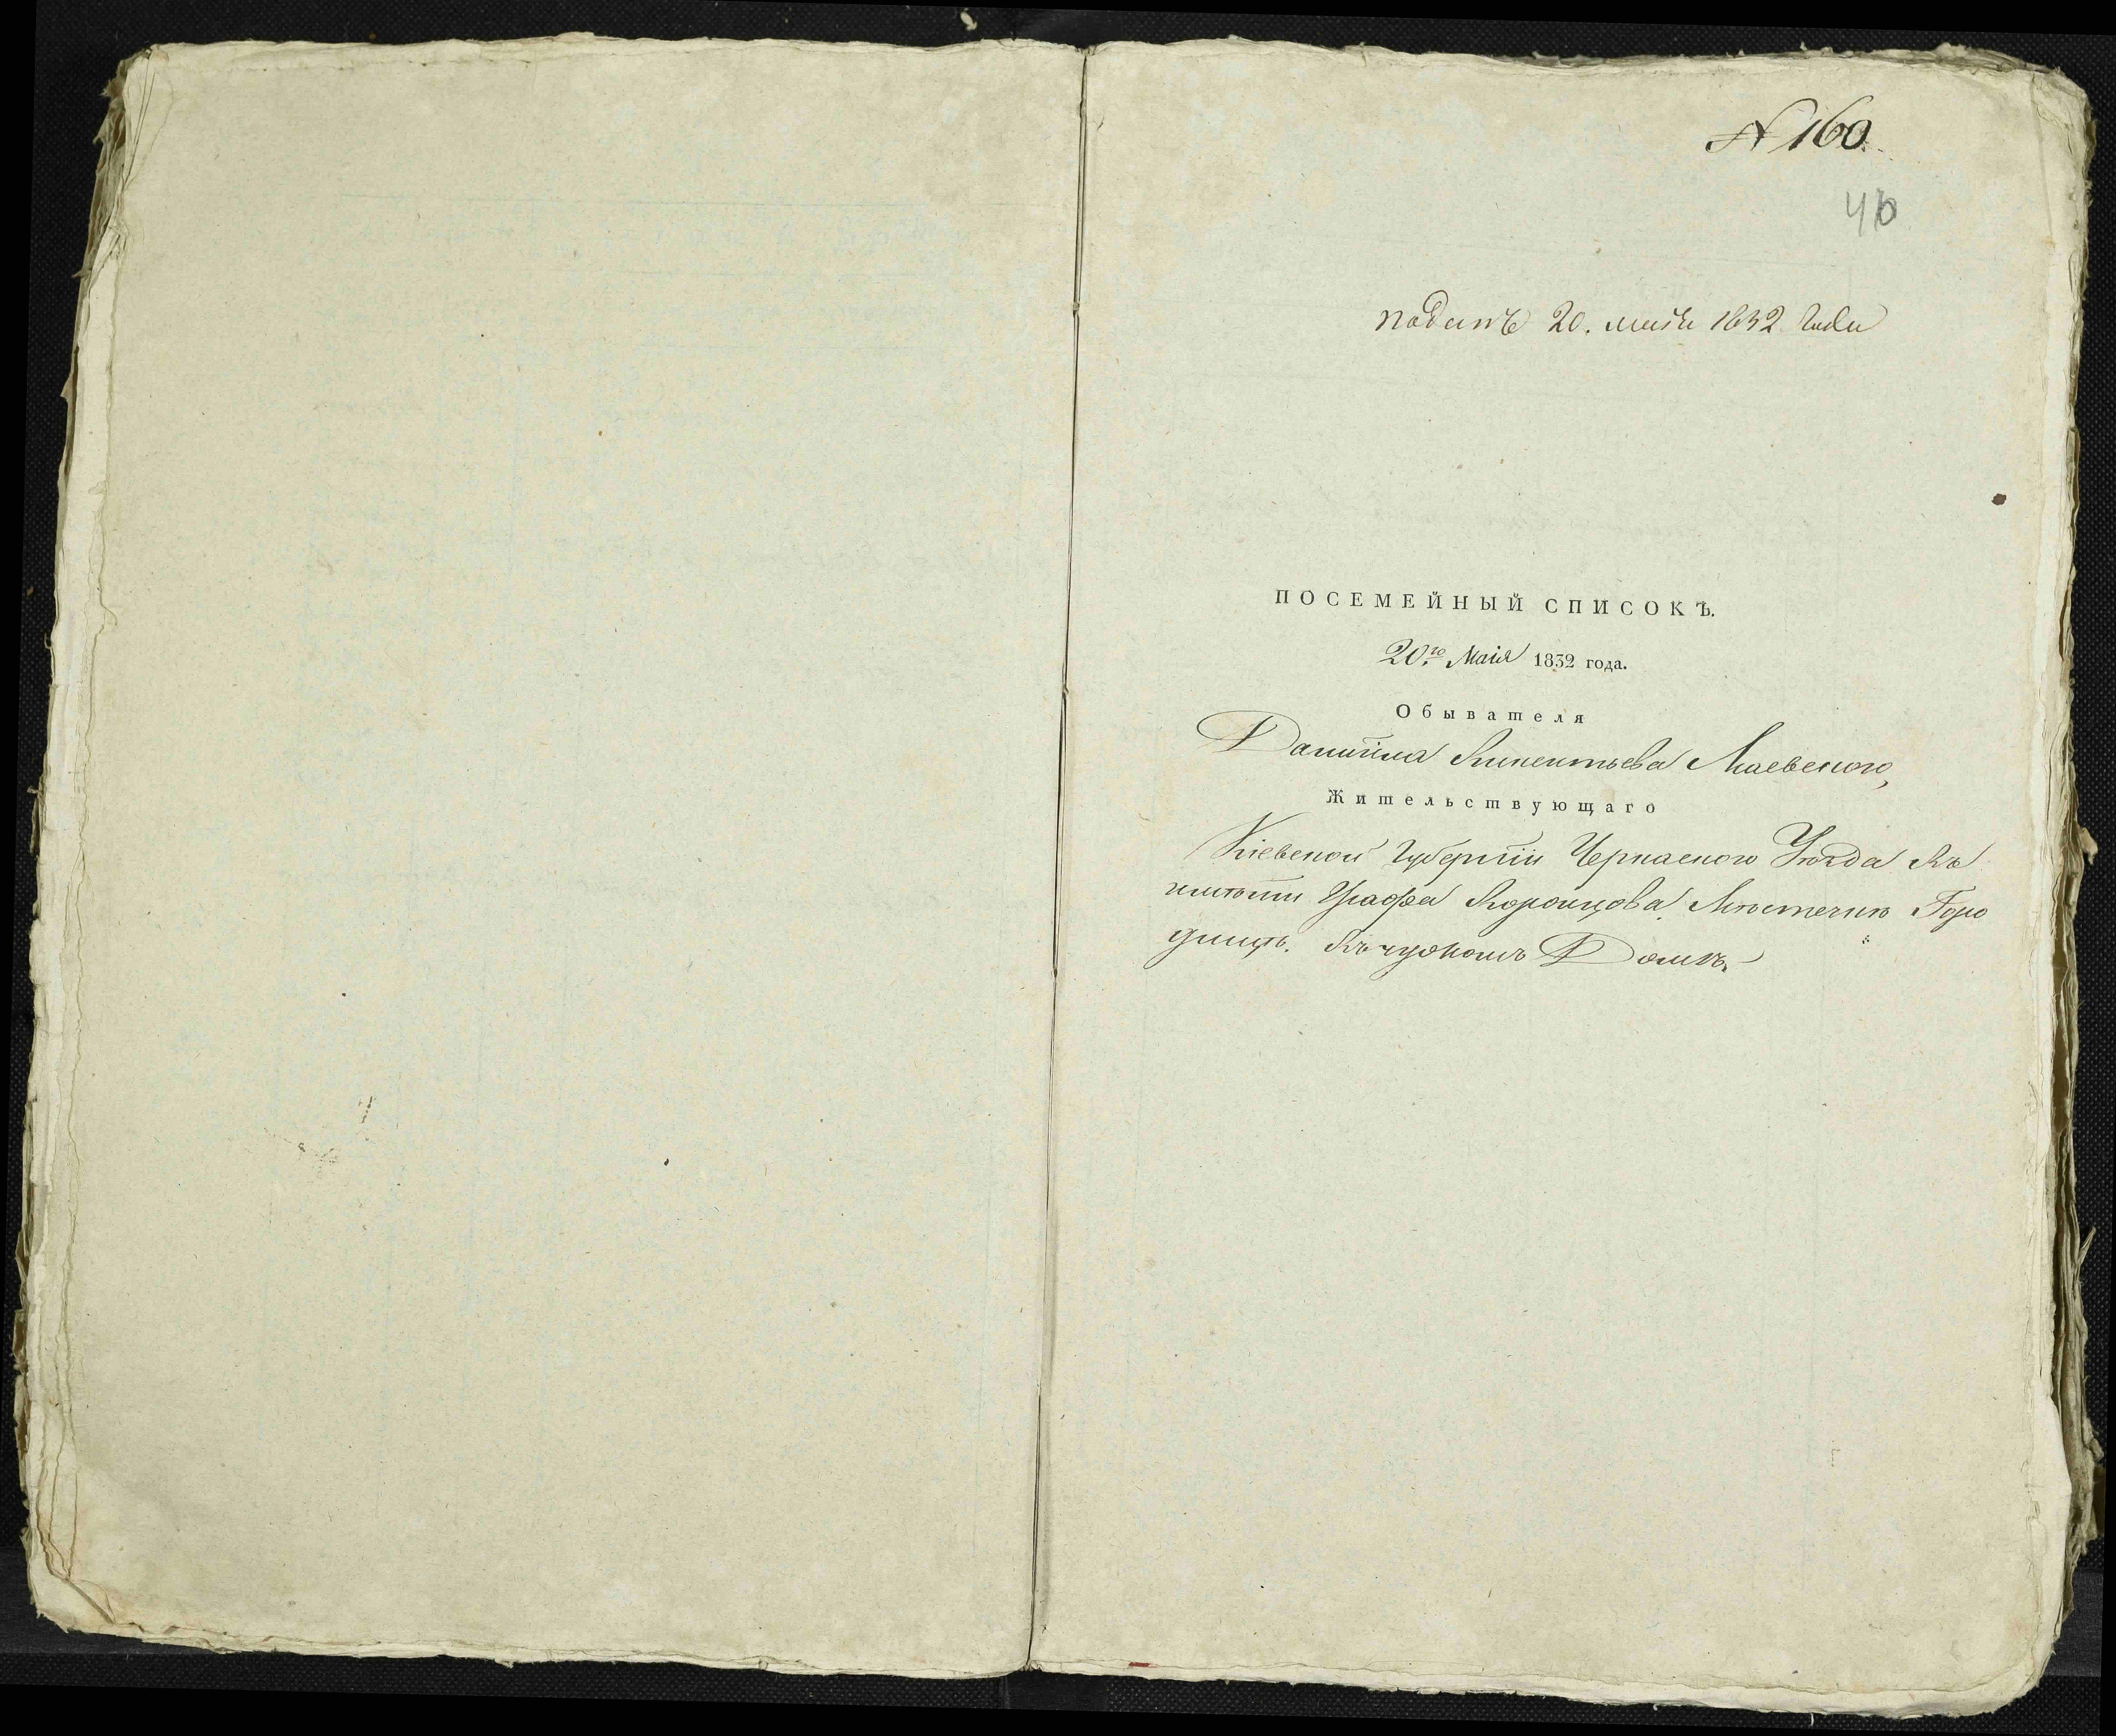 № 160.
40
поданъ 20. маiя 1832 года
ПОСЕМЕЙНЫЙ СПИСОКЪ.
20го Маiя 1832 года.
Обывателя
Данiила Викентьева Маевского,
Жительствующаго
Кiевской Губернiи Черкаского Уѣзда Въ
имѣнiи Графа Воронцова Мѣстечкѣ Горо
дищѣ. Въ чужомъ Домѣ.